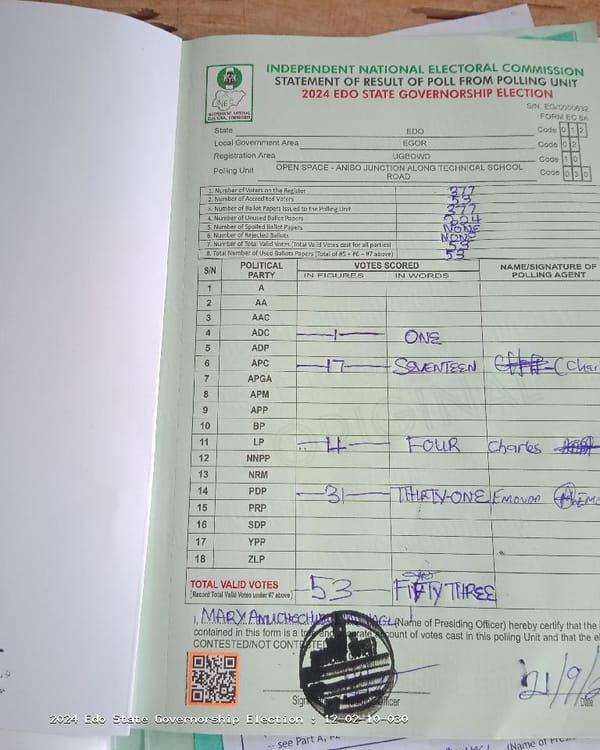 INDEPENDENT NATIONAL ELECTORAL COMMISSION
STATEMENT OF RESULT OF POLL FROM POLLING UNIT
2024 EDO STATE GOVERNORSHIP ELECTION
S/N. EG/0000632
FORM EC 8A
State EDO Code 0 1 2
Local Government Area EGOR Code 0 2
Registration Area UGBOWO Code 1 0
Polling Unit OPEN SPACE - ANISO JUNCTION ALONG TECHNICAL SCHOOL ROAD Code 0 3 0
1. Number of Voters on the Register 377
2. Number of Accredited Voters 53
3. Number of Ballot Papers Issued to the Polling Unit 377
4. Number of Unused Ballot Papers 324
5. Number of Spoiled Ballot Papers NONE
6. Number of Rejected Ballots NONE
7. Number of Total Valid Votes (Total Valid Votes cast for all parties) 53
8. Total Number of Used Ballots Papers (Total of #5 + #6 + #7 above) 53
S/N POLITICAL PARTY VOTES SCORED NAME/SIGNATURE OF POLLING AGENT
IN FIGURES IN WORDS
1 A
2 AA
3 AAC
4 ADC 1 ONE
5 ADP
6 APC 17 SEVENTEEN
7 APGA
8 APM
9 APP
10 BP
11 LP 4 FOUR Charles
12 NNPP
13 NRM
14 PDP 31 THIRTY-ONE
15 PRP
16 SDP
17 YPP
18 ZLP
TOTAL VALID VOTES 53 FIFTY THREE
(Record Total Valid Votes under #7 above)
I, MARY (Name of Presiding Officer) hereby certify that the
contained in this form is a account of votes cast in this polling Unit and that the
CONTESTED/NOT CONTESTED
21/9/
Date
2024 Edo State Governorship Election : 12-02-10-030
-- see Part A,
(Name of